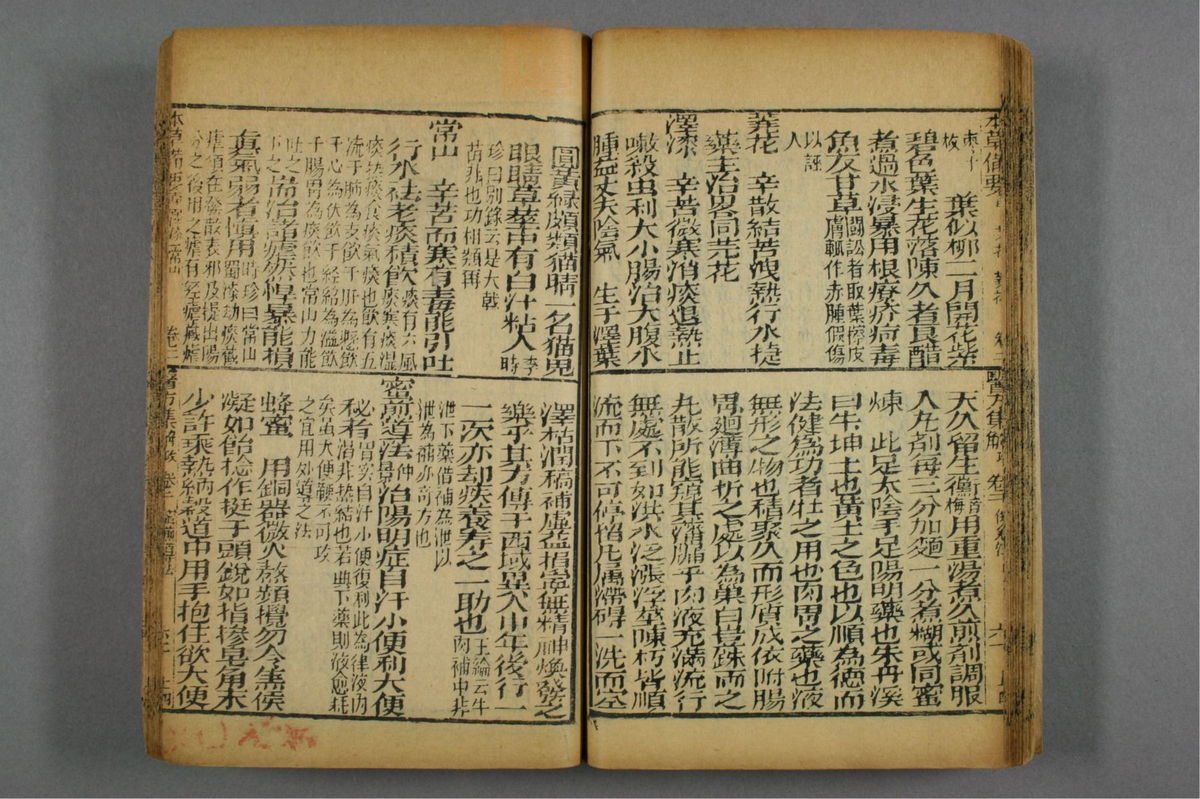 葉似柳二月開花紫
碧色葉生花落陳久者良醋
煮過水浸暴用根療疥疴毒
魚反甘草鬬訟者取葉擦皮膚輒作赤腫假傷
以誣人
蕘花　辛散結苦洩熱行水捷
藥主治畧同芫花
澤漆　辛苦微寒消痰退熱止
嗽殺虫利大小腸治大腹水
腫益丈夫陰氣　生于澤葉
用重湯煮久煎劑調服
入凡劑每三分加麵一分煮糊或同蜜
煉　此足太陰手足陽明藥也朱丹溪
曰牛坤土也黄土之色也以順為德而
法健為功者牡之用也肉胃之藥也液
無形之物也積聚久而形質成依附腸
胃迴薄曲折之處以為巢臼豈銖兩之
丸散所能窺其藩牖乎肉液充滿流行
無處不到如洪水泛漲浮莝陳朽皆順
流而下不可停留凡属滯碍一洗而空
圓黃綠頗類猫睛一名猫兒
眼睛草莖中有白汁粘人李時
珍曰别錄云是大戟
苗非也功相類耳
常山　辛苦而寒有毒能引吐
行水祛老痰積飲痰有六風痰寒痰濕
痰熱痰食痰氣痰也飲有五
流于肺為支飲于肝為懸飲
于心為伏飲于經絡為溢飲
于腸胃為痰飲也常山力能
吐之下之治諸瘧然悍暴能損
真氣弱者慎用時珍曰常山蜀漆劫痰截
瘧須在發散表邪及提出陽
分之後用之瘧有經瘧臟瘧
澤枯潤槁補虚益損寧無精神煥發之
樂乎其方傳于西域異人中年後行一
二次亦却疾養夀之一助也王綸云牛肉補中非
泄下藥借補為泄以
泄為補亦奇方也
蜜煎導法仲景治陽明症自汗小便利大便
必者胃实自汗小便復利此為津液内
矣雖大便鞕不可攻
之宜用妙道之法
蜂蜜　用銅器微火熬頻攪勿令焦候
凝如飴捻作挺子頭銳如指摻皂角末
少許乘熱納穀道中用手抱住欲大便